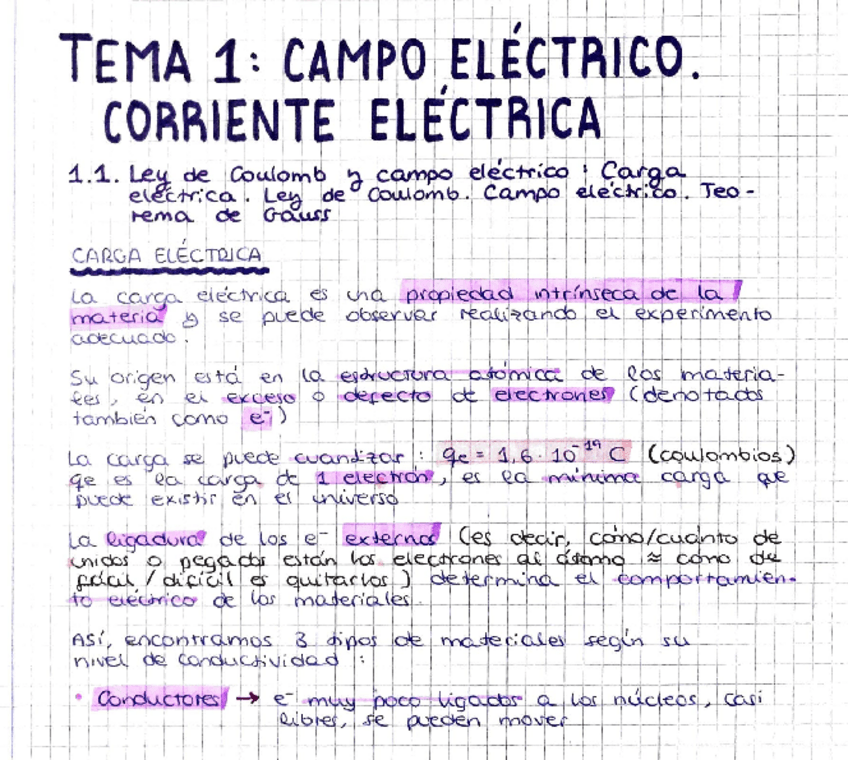 TEMA 1: CAMPO ELÉCTRICO.
CORRIENTE ELÉCTRICA
1.1. Ley de Coulomb y campo eléctrico: Carga
eléctrica. Ley de Coulomb. Campo eléctrico. Teo-
rema de Gauss
CARGA ELÉCTRICA
La carga eléctrica es una propiedad intrínseca de la
materia y se puede observar realizando el experimento
adecuado.
Su origen está en la estructura atómica de los materia-
les, en el exceso o defecto de electrones (denotados
también como e⁻)
La carga se puede cuantizar: qe = 1,6 · 10⁻¹⁹ C (coulombios)
qe es la carga de 1 electrón, es la mínima carga que
puede existir en el universo
La ligadura de los e⁻ externos (es decir, cómo/cuánto de
unidos o pegados están los electrones al átomo ≈ cómo de
fácil / difícil es quitarlos) determina el comportamien-
to eléctrico de los materiales.
Así, encontramos 3 tipos de materiales según su
nivel de conductividad:
• Conductores → e⁻ muy poco ligados a los núcleos, casi
libres, se pueden mover